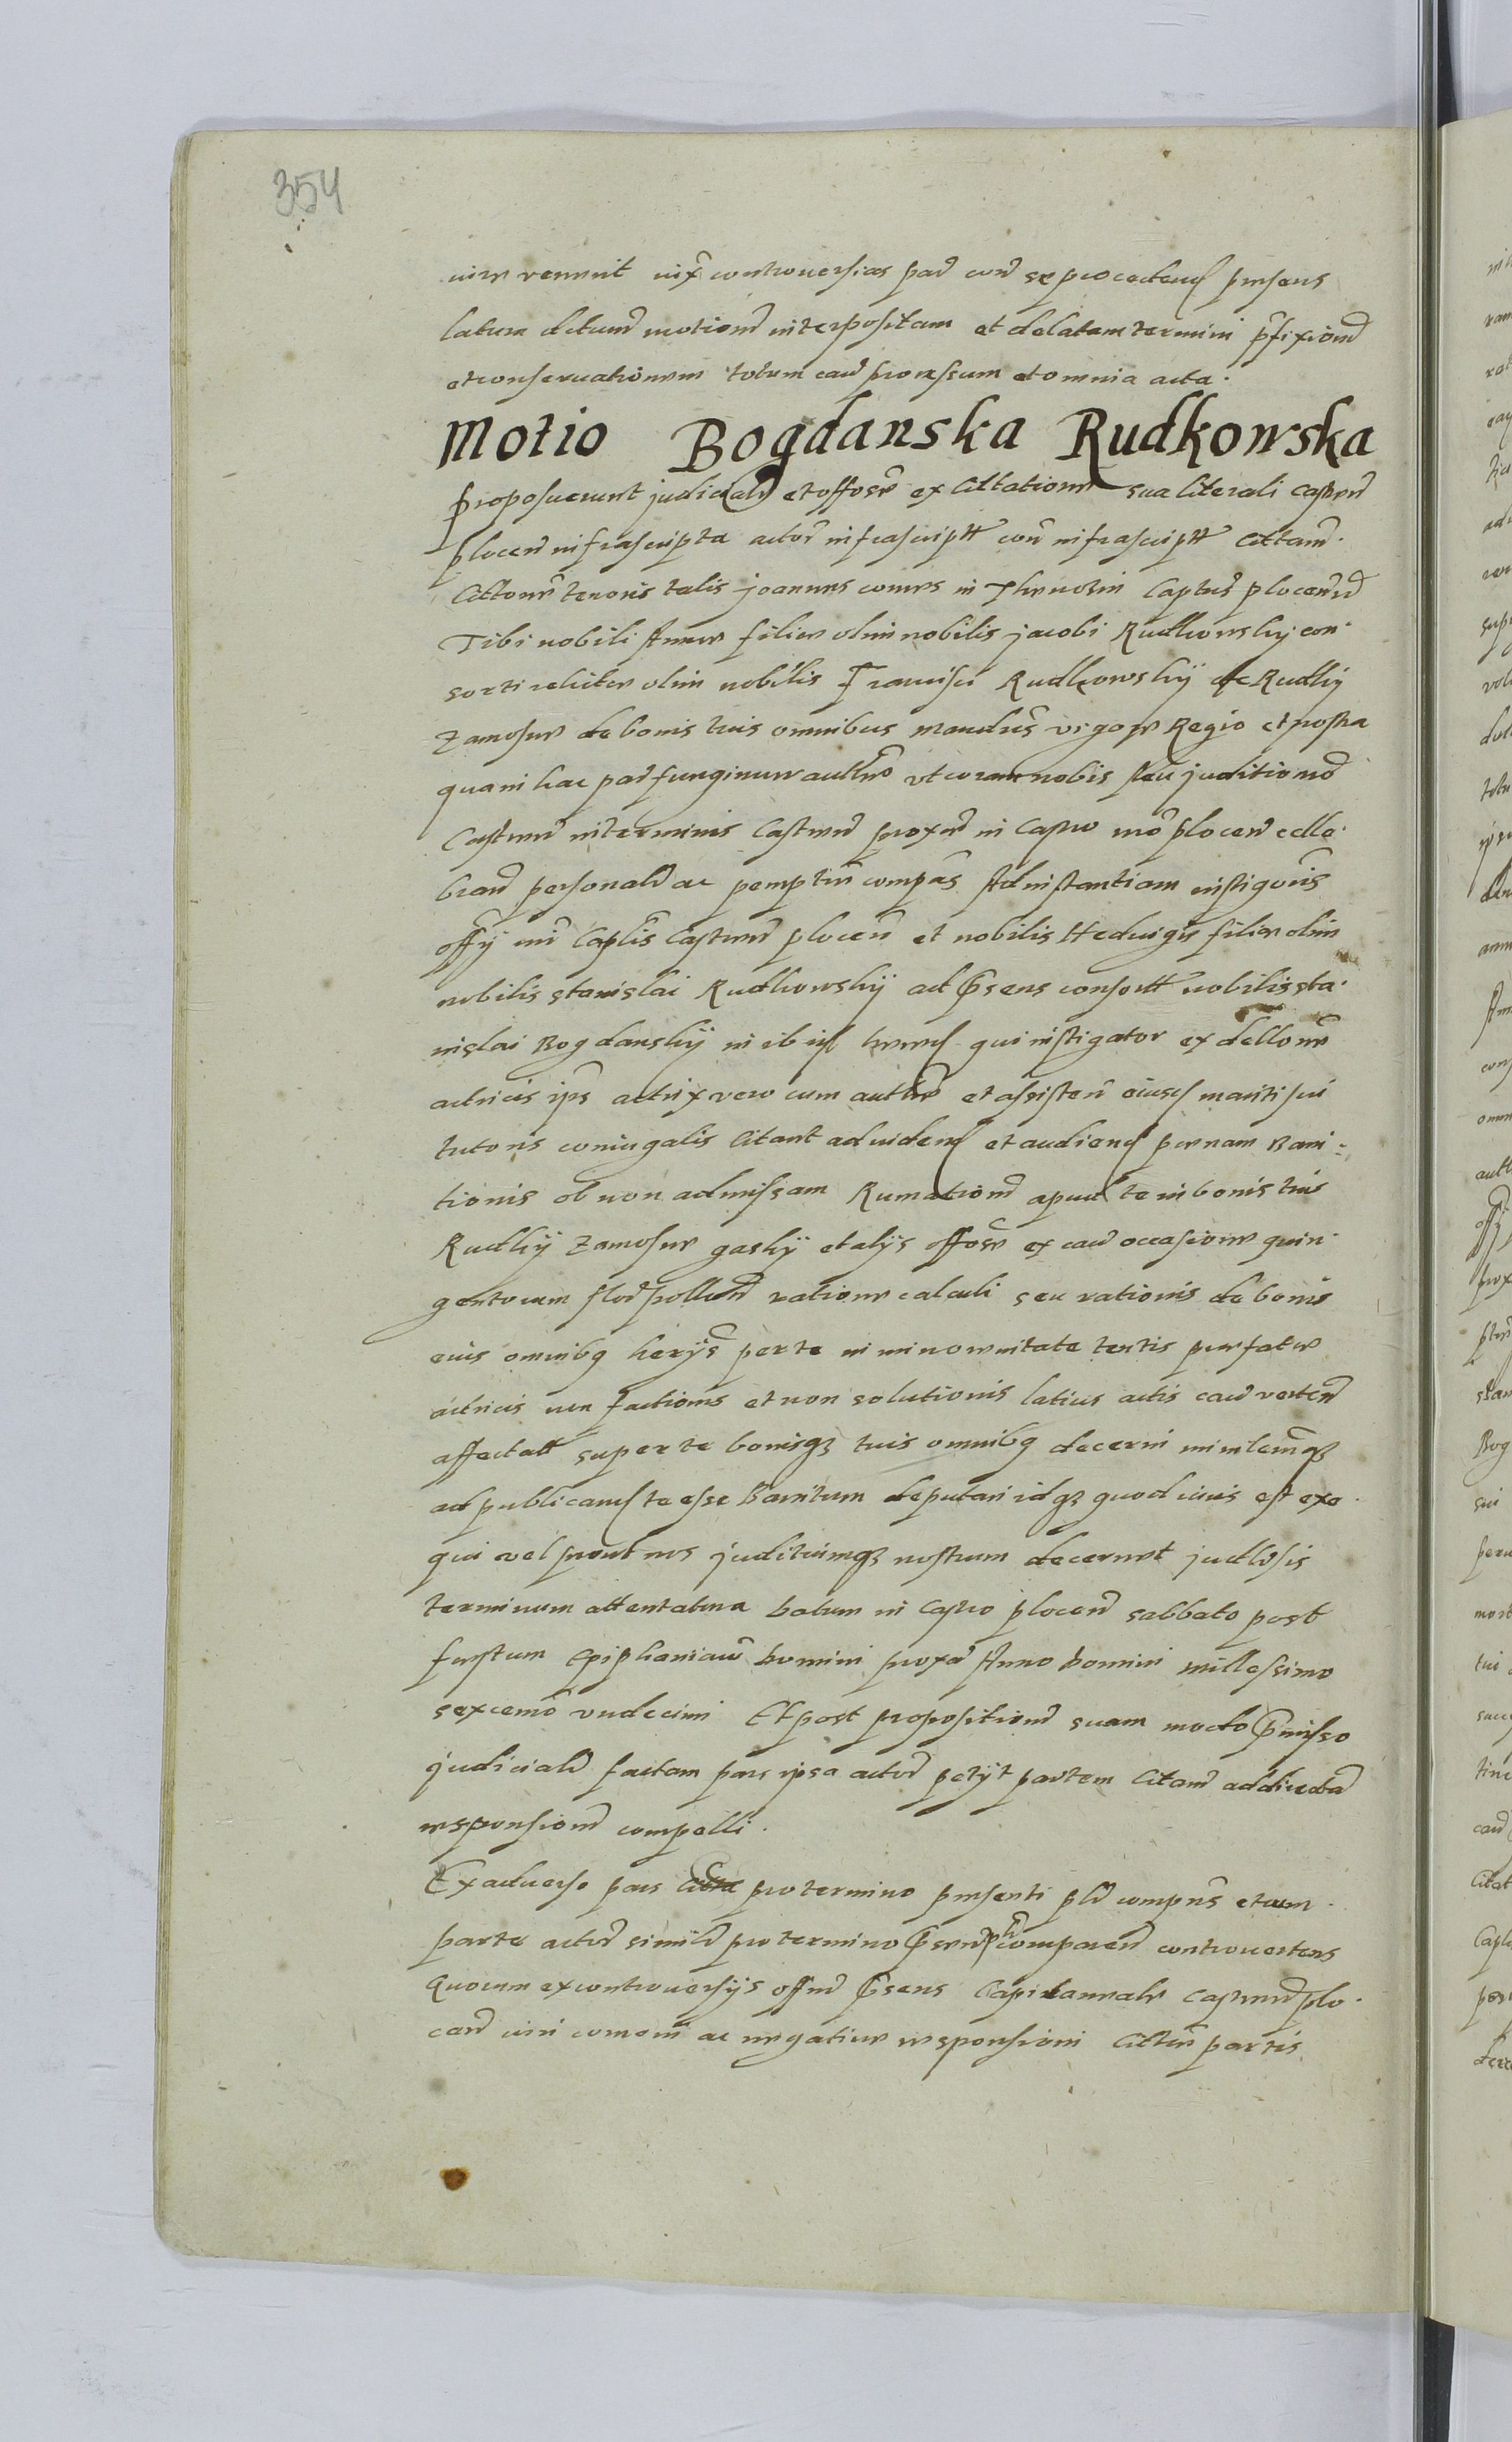 354
iure venerit iuxta controversias par cum se procedend presens
latum dictum motionem interpositam et delatam termini prefixionem
et conservationem totum caus processum et omnia acta.
Motio Bogdanska Rudkowska
Proposuerunt judicialr et offose ex Cittatione sua literali castren
plocen infrascripta actor infrascriptt con infrascriptt Cittam.
Cittone tenoris talis joannes comes in Capteus plocensis
Tibi nobili Annæ filiæ olim nobilis jacobi Rudkowskij con.
sorti relictæ olim nobilis Francisci Rudkowskij de Rudky
Zamosne de bonis tuis omnibus mandus vigore Regio et nostra
qua in hac par fungimur authte vt coram nobis seu juditio nro
Castren in terminis Castren proxne in Castro nro plocen celle.
bran personalr ac pemptrie compas Ad instantiam instigoris
offy nri Caplis Castren plocen et nobilis Hedvigis filiæ olim
nobilis stanislai Rudkowskij ad psens consortt nobilis sta.
nislai Bogdanskij in ibid qui instigator ex dellone
actricis ips actrix vero cum authte et assisten eiusd mariti sui
tutoris coniugalis Citant ad vidend et audiend pœnam Bani-
tionis ob non admissam Rumationem apud te in bonis tuis
Rudky Zamosne gasky et alijs offose ex caus occasione quin-
gentorum flor pollon ratione calculi seu rationis de bonis
eius omnibq herijs per te in minorennitate tentis præfatæ
actricis non factionis et non solutionis latius actis caus verten
affectatt super te bonisqz tuis omnibq decerni
ad publicand te esse Banitum deputari idqz quod iuris est exe.
qui vel prout nos juditiumqz nostrum decernet judlr sis
terminum attentatura Datum in Castro plocen sabbato post
festum Epiphaniarum Domini proxo Anno Domini millesimo
sexcemo undecimi Et post propositionem suam modo pmisso
judicialr factam pars ipsa actor petijt partem Citam ad directam
responsionem compelli.
Ex adverso pars pro termino presenti plr compns et cum
parte actor similr pro termino compareñ controvertens
Quorum ex controversijs offm psens Capitaneale Castren plo.
cen viri comoni ac negative responsioni Cittæ partis